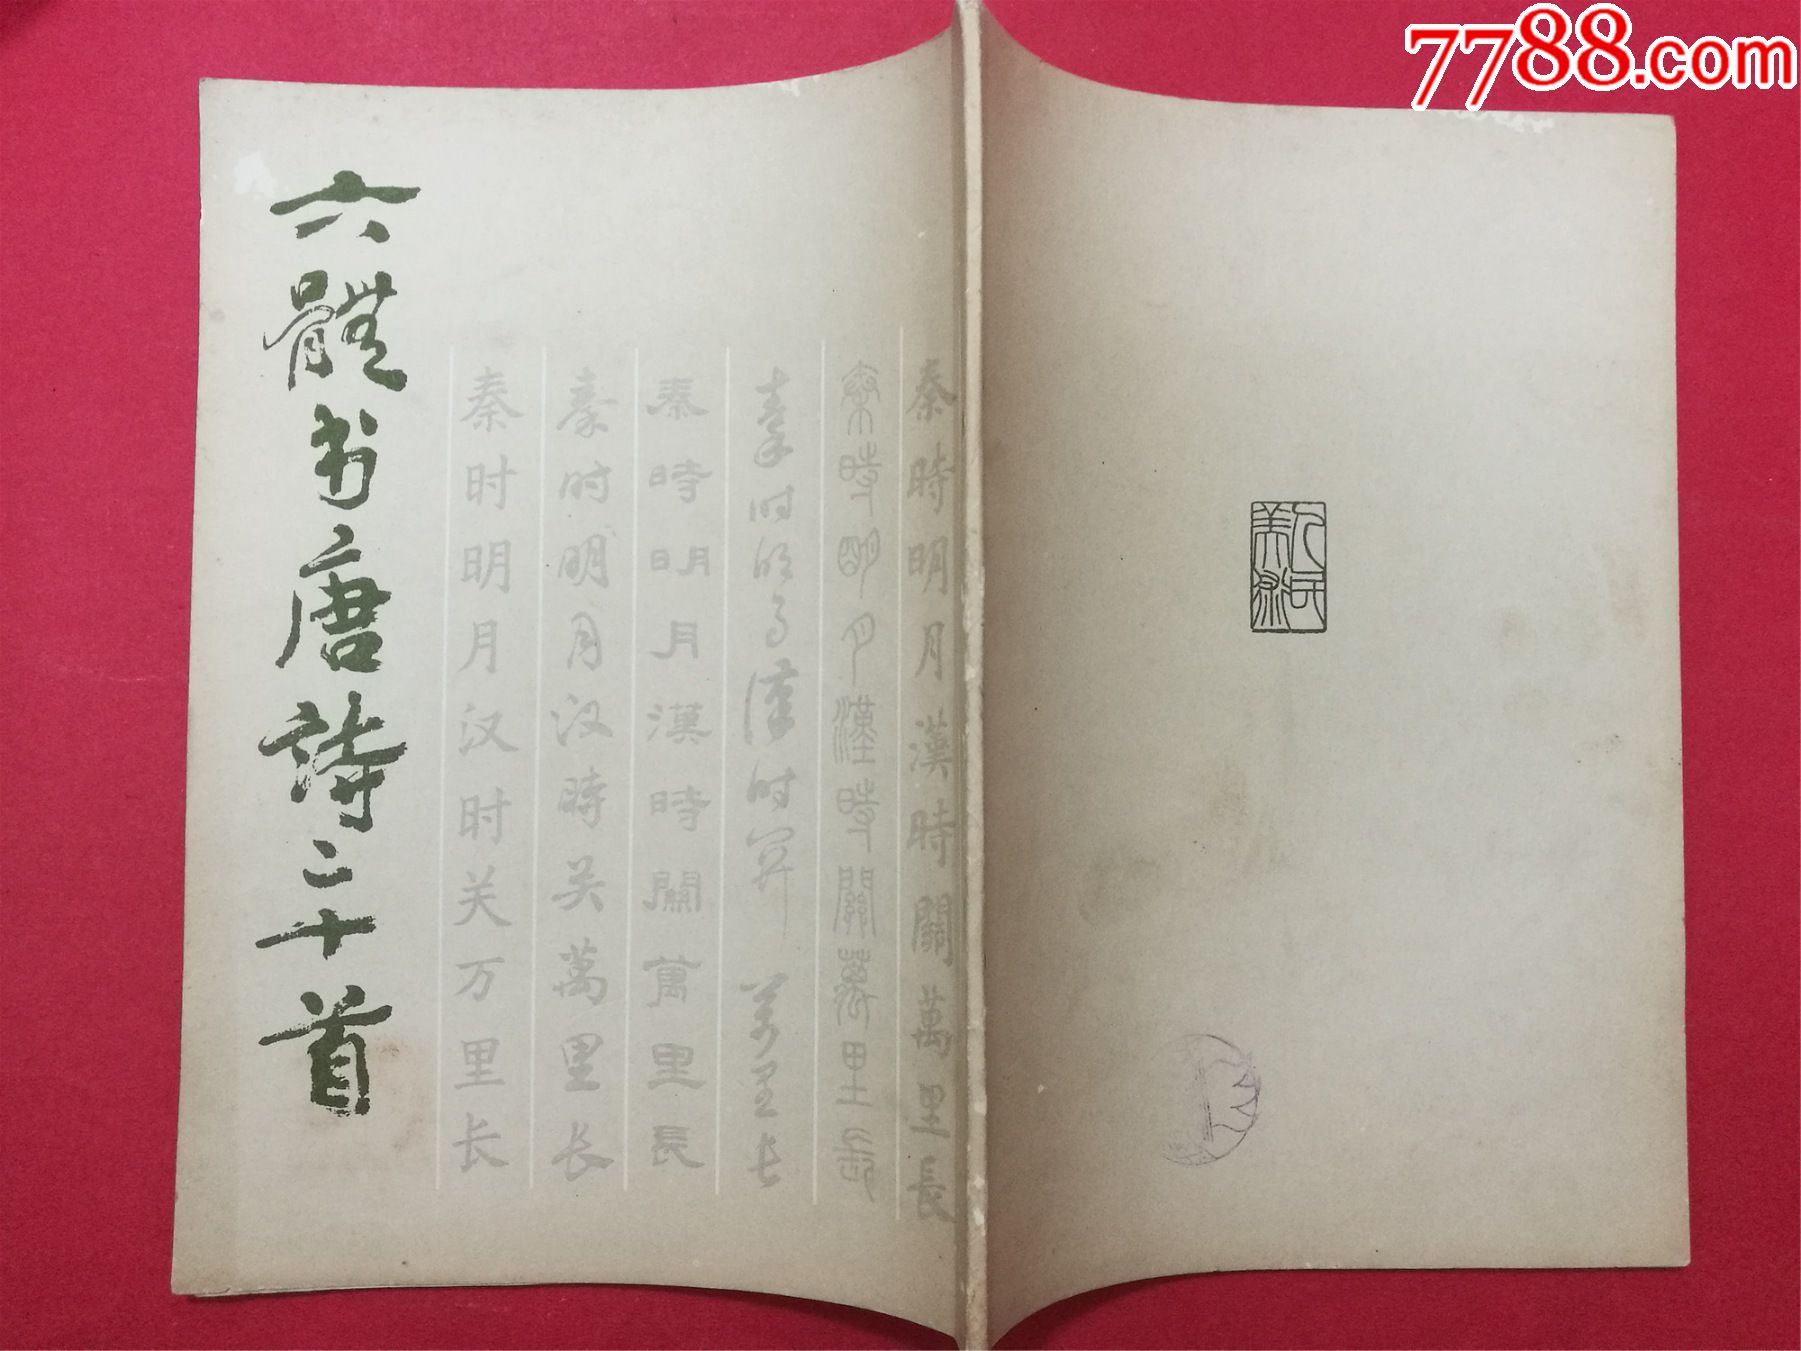 7788.com
六體书唐詩二十首
秦時明月漢時關萬里長
秦時明月漢時關萬里長
秦时明月漢时关万里长
秦時明月漢時關萬里長
秦时明月汉時关萬里长
秦时明月汉时关万里长
人民美術